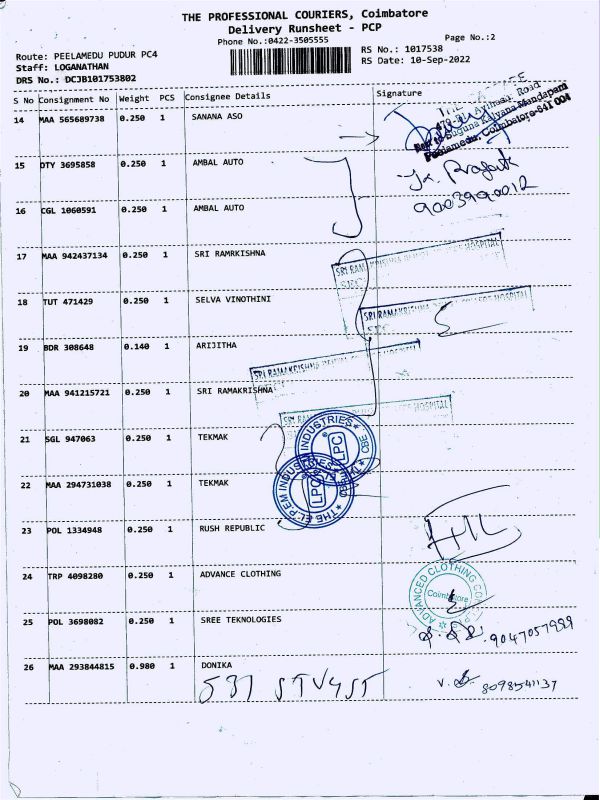 THE PROFESSIONAL COURIERS, Coimbatore
Delivery Runsheet - PCP
Phone No.:0422-3505555
Page No.:2
Route: PEELAMEDU PUDUR PC4
RS No.: 1017538
Staff: LOGANATHAN
RS Date: 10-Sep-2022
DRS No.: DCJB101753802
S No Consignment No Weight PCS Consignee Details Signature
14 MAA 565689738 0.250 1 SANANA ASO
Avinashi Road
Suguna Kalyana Mandapam
Peelamedu, Coimbatore-641 004
15 DTY 3695858 0.250 1 AMBAL AUTO
16 CGL 1060591 0.250 1 AMBAL AUTO
9003990012
17 MAA 942437134 0.250 1 SRI RAMRKISHNA
SRI RAMAKRISHNA DENTAL COLLEGE HOSPITAL
18 TUT 471429 0.250 1 SELVA VINOTHINI
SRI RAMAKRISHNA DENTAL COLLEGE HOSPITAL
19 BDR 308648 0.140 1 ARIJITHA
SRI RAMAKRISHNA DENTAL COLLEGE HOSPITAL
20 MAA 941215721 0.250 1 SRI RAMAKRISHNA
HOSPITAL
21 SGL 947063 0.250 1 TEKMAK
INDUSTRIES
LPC
CBE
22 MAA 294731038 0.250 1 TEKMAK
THE EL-P-EM INDUSTRIES
LPC
23 POL 1334948 0.250 1 RUSH REPUBLIC
24 TRP 4098280 0.250 1 ADVANCE CLOTHING
ADVANCED CLOTHING
Coimbatore
25 POL 3698082 0.250 1 SREE TEKNOLOGIES
9047057989
26 MAA 293844815 0.980 1 DONIKA
8098541137